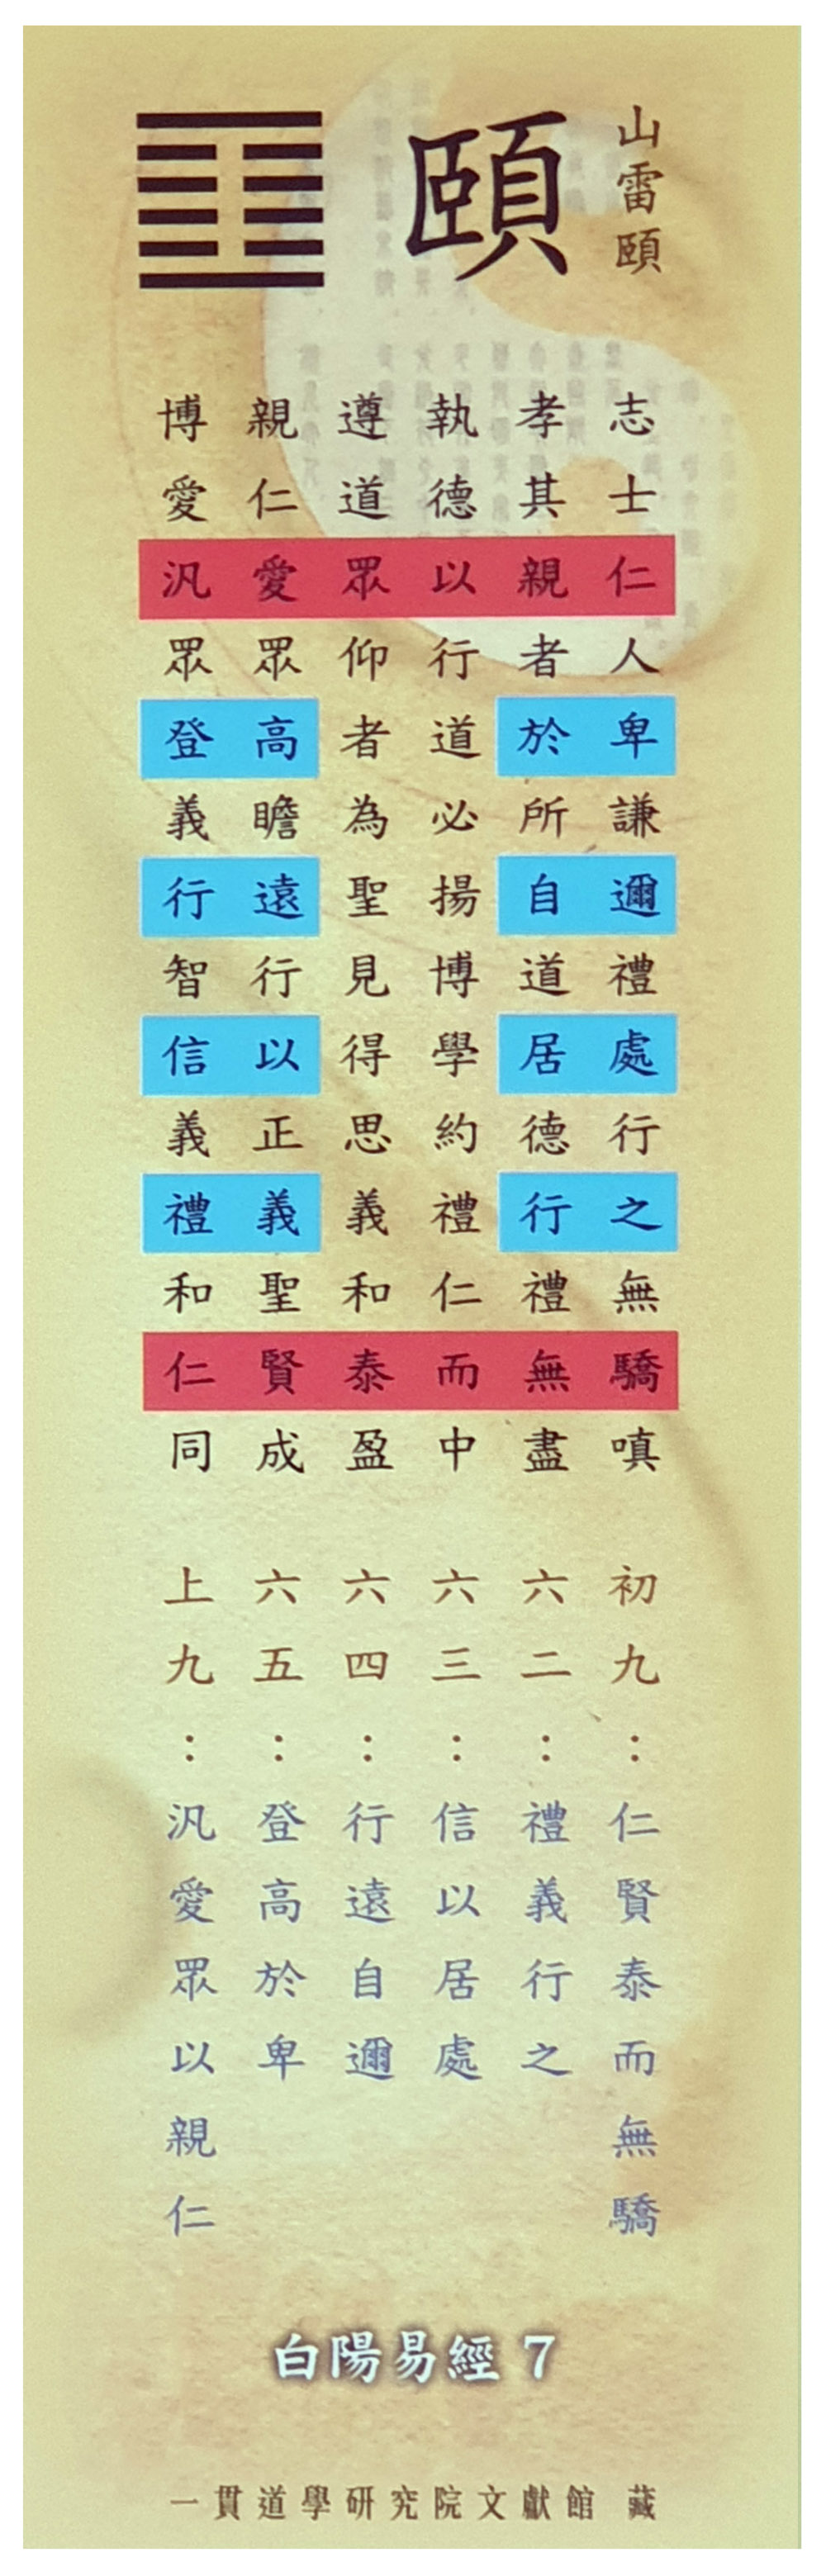 山雷頤
頤
志士仁人卑謙邇禮處行之無驕嗔
孝其親者於所自道居德行禮無盡
執德以行道必揚博學約禮仁而中
遵道眾仰者為聖見得思義和泰盈
親仁愛眾高瞻遠行以正義聖賢成
博愛汎眾登義行智信義禮和仁同
初九：仁賢泰而無驕
六二：禮義行之
六三：信以居處
六四：行遠自邇
六五：登高於卑
上九：汎愛眾以親仁
白陽易經 7
一貫道學研究院文獻館 藏